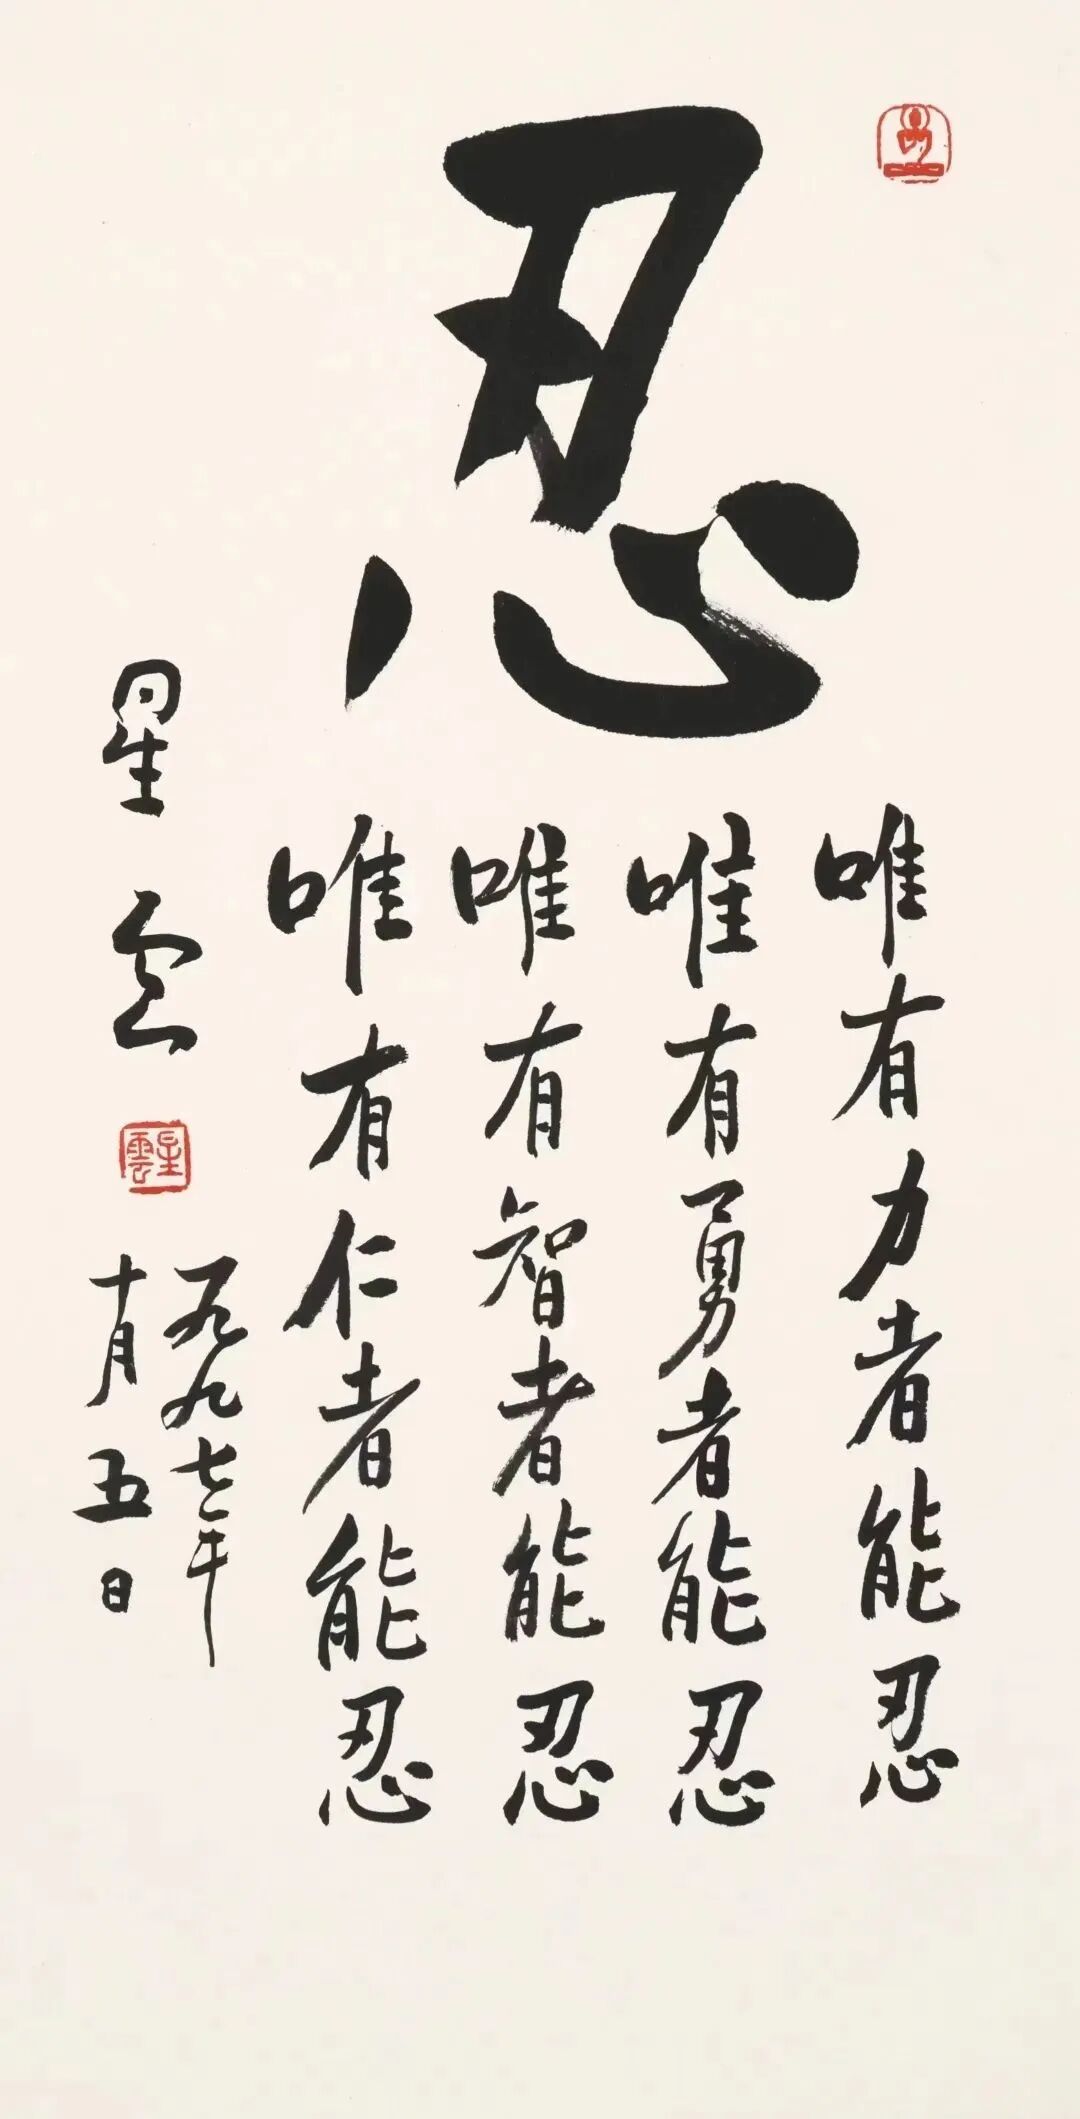 忍
唯有力者能忍
唯有勇者能忍
唯有智者能忍
唯有仁者能忍
一九九七年
十月五日
星云
星雲